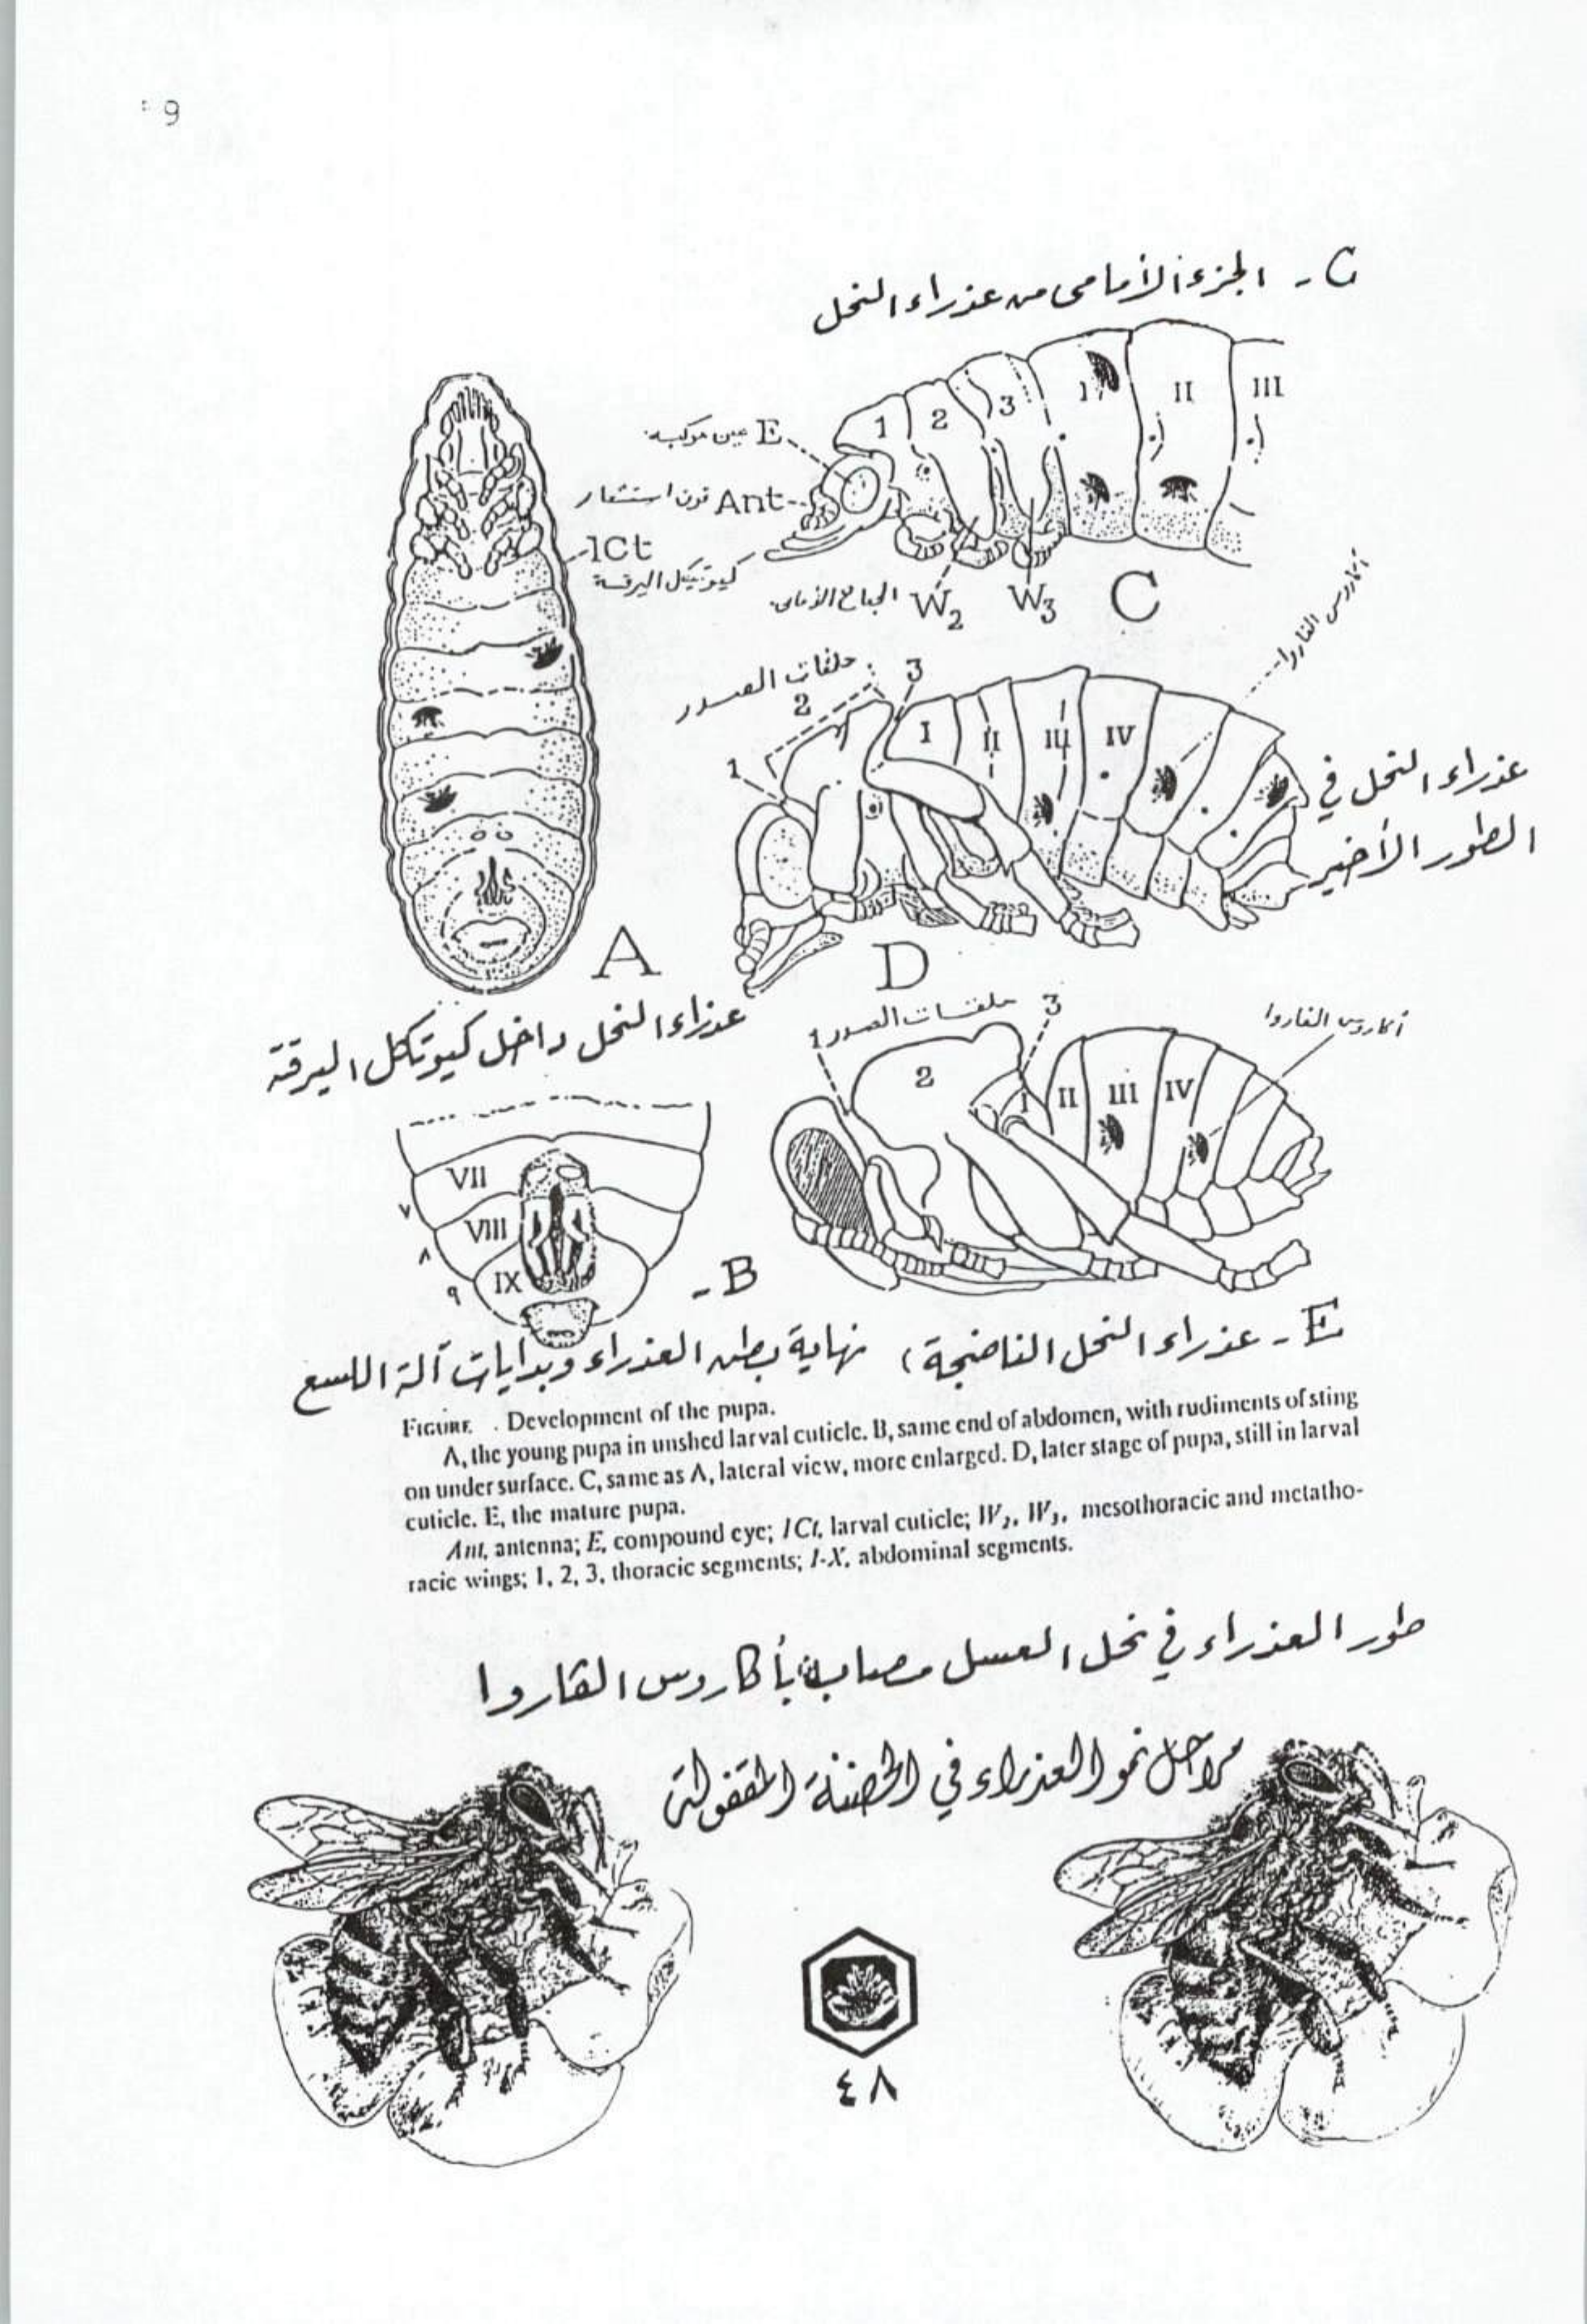 9
C - الجزء الأمامى من عذراء النحل
1 2 3 I II III
عين مركبة E
قرن استشعار Ant
lCt
كيوتيكل اليرقة
الجناح الأمامى W2 W3 C
أكاروس الفاروا
حلقات الصدر
1 2 3 I II III IV
عذراء النحل في
الطور الأخير
A
D
عذراء النحل داخل كيوتكل اليرقة
حلقات الصدر
1 2 3 I II III IV
أكاروس الفاروا
VII
٧
VIII
٨
IX
٩
- B
E - عذراء النحل الناضجة ) نهاية بطن العذراء وبدايات آلة اللسع
FIGURE. . Development of the pupa.
A, the young pupa in unshed larval cuticle. B, same end of abdomen, with rudiments of sting
on under surface. C, same as A, lateral view, more enlarged. D, later stage of pupa, still in larval
cuticle. E, the mature pupa.
Ant, antenna; E, compound eye; lCt, larval cuticle; W2, W3, mesothoracic and metatho-
racic wings; 1, 2, 3, thoracic segments; I-X, abdominal segments.
طور العذراء في نحل العسل مصابة بأكاروس الفاروا
مراحل نمو العذراء في الحضنة المقفولة
٤٨